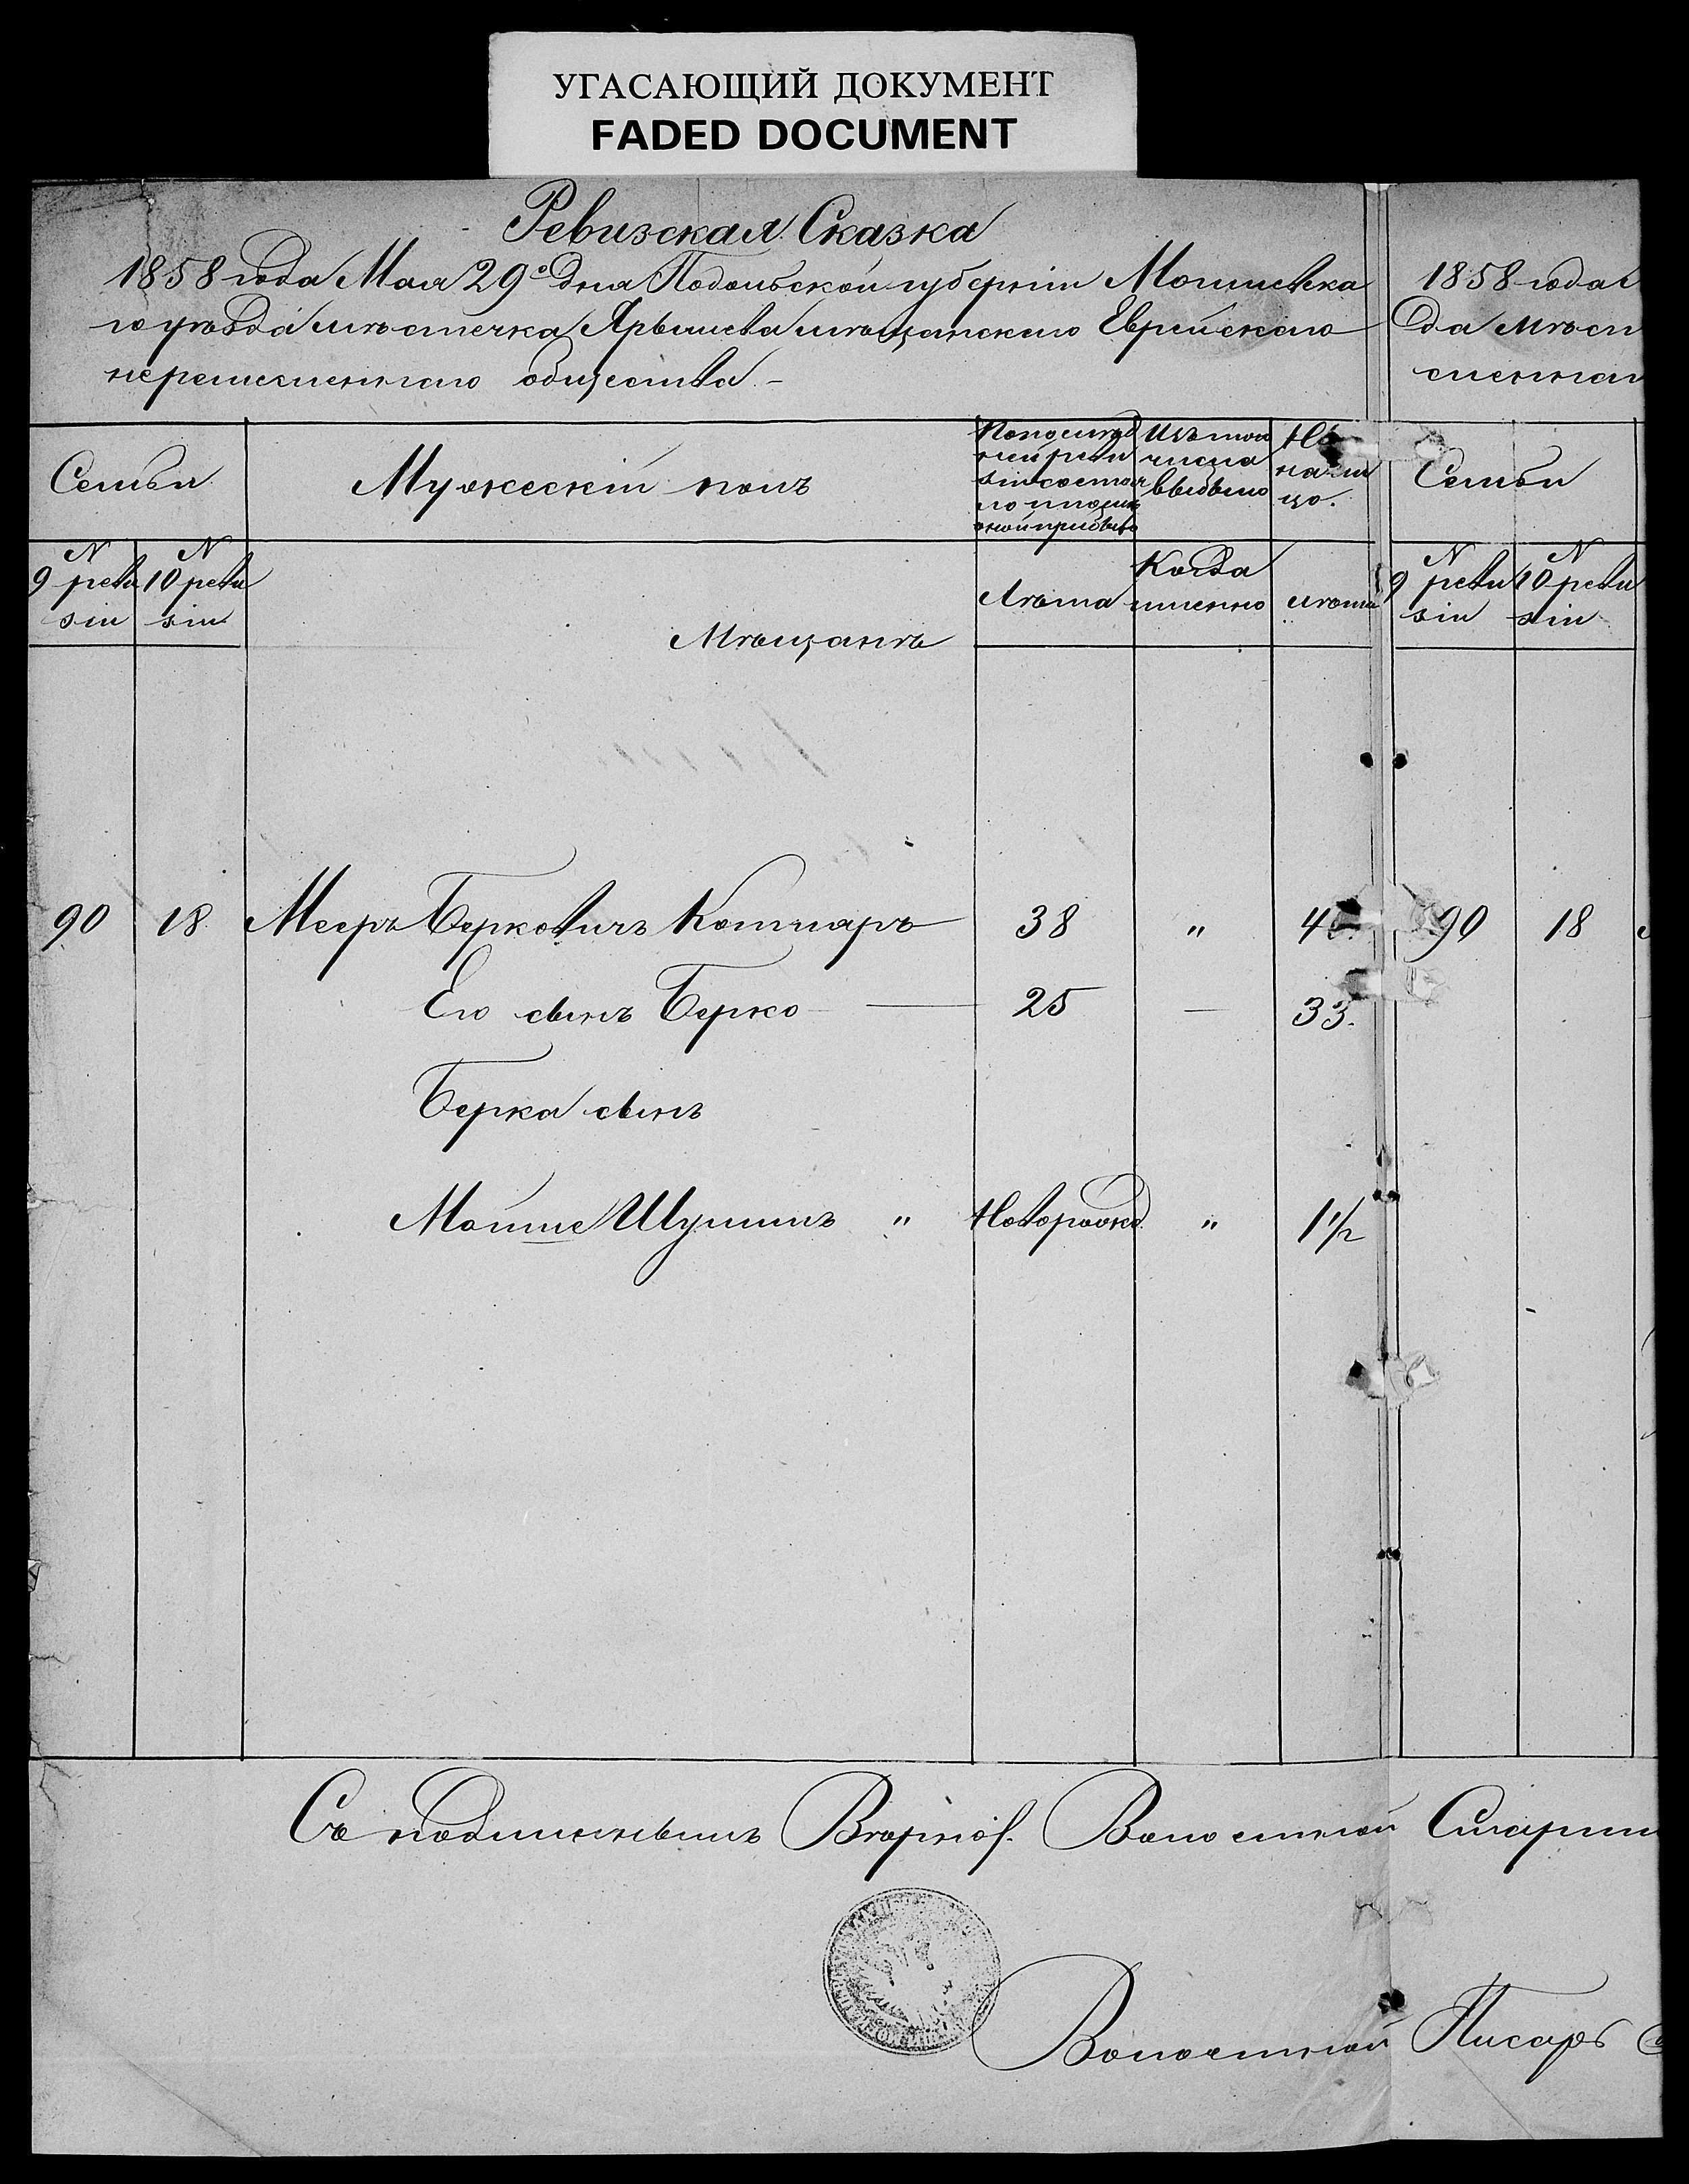 УГАСАЮЩИЙ ДОКУМЕНТ
FADED DOCUMENT
Ревизская Сказка
1858 года Мая 29о дня Подольской губерніи Могилевска
го уѣзда мѣстечка Ярышева мѣщанского Еврейского
неремесленного общества.-
Семьи
Мужескій полъ
По послѣд
ней реви
зіи состоя
ло и послѣ
оной прибыло
Изъ того
числа
выбыло
Нынѣ
на ли
цо.
N
9 реви
зіи
N
10 реви
зіи
Лѣта
Когда
именно
лѣта
Мѣщанъ
90 18 Мееръ Берковичъ Котляръ 38 " 4
Его сынъ Берко — 25 — 33.
Берка сынъ
Мошие Шулимъ " Новорожд. " 1 1/2
1858 года
да мѣст
сленнаг
Семьи
N
9 реви
зіи
N
10 реви
зіи
90 18
Съ подлиннымъ Вѣрно. Волостной Старши
Волостной Писарь